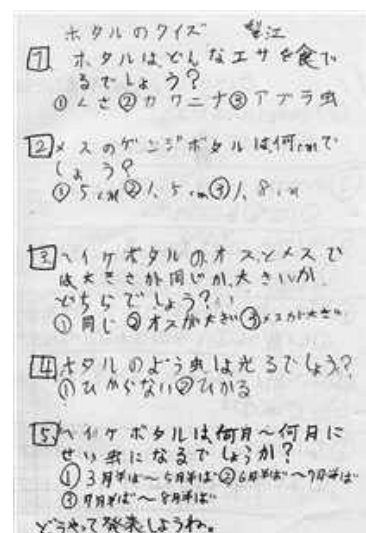 ホタルのクイズ 望江
1 ホタルはどんなエサを食べ
るでしょう?
①くさ②カワニナ③アブラ虫
2 メスのゲンジボタルは何cmで
しょう?
①5cm②1.5cm③1.8cm
3 ヘイケボタルのオスとメスで
は大きさが同じか、大きいか、
どちらでしょう?
①同じ②オスが大きい③メスが大きい
4 ホタルのよう虫は光るでしょう?
①ひからない②ひかる
5 ヘイケボタルは何月〜何月に
せい虫になるでしょうか?
①3月半ば〜5月半ば②6月半ば〜7月半ば
③7月半ば〜8月半ば
どうやって発表しようね。